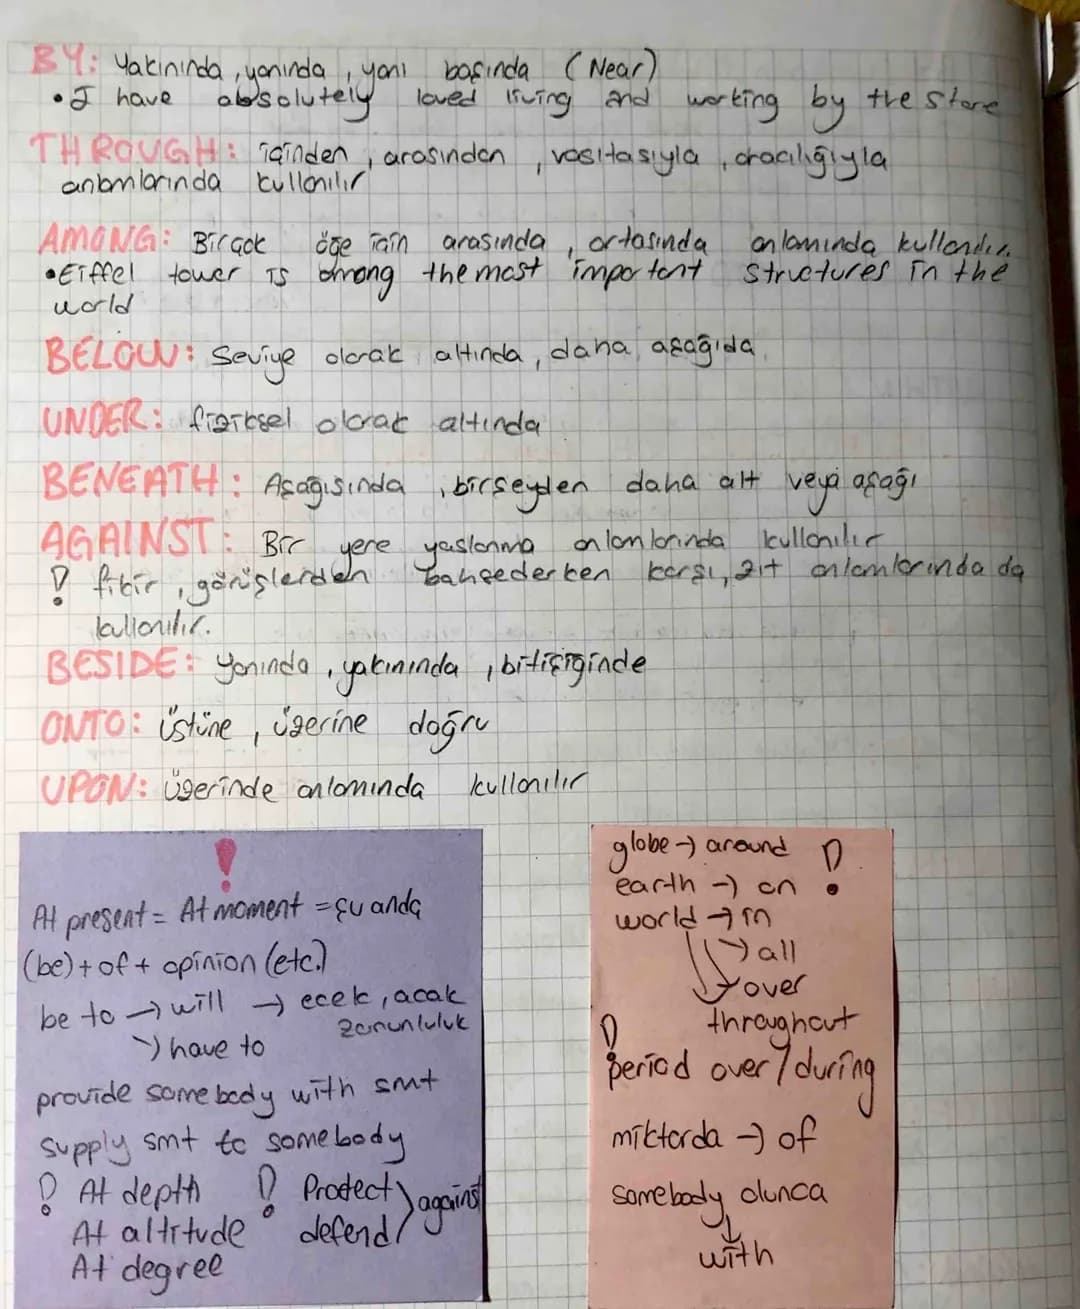 BY: Yakınında, yanında, yanı başında (Near)
• I have absolutely loved living and working by the store
THROUGH: içinden, arasından, vasıtasıyla, aracılığıyla
anlamlarında kullanılır
AMONG: Birçok öğe için arasında, ortasında anlamında kullanılır.
• Eiffel tower is among the most important structures in the
world
BELOW: Seviye olarak altında, daha aşağıda
UNDER: fiziksel olarak altında
BENEATH: Aşağısında, birşeyden daha alt veya aşağı
AGAINST: Bir yere yaslanma anlamlarında kullanılır
! fikir, görüşlerden bahsederken karşı, zıt anlamlarında da
kullanılır.
BESIDE: Yanında, yakınında, bitişiğinde
ONTO: üstüne, üzerine doğru
UPON: üzerinde anlamında kullanılır
!
At present = At moment = şu anda
(be) + of + opinion (etc.)
be to → will → ecek, acak
zorunluluk
→ have to
provide somebody with smt
supply smt to somebody
! At depth ! Protect
At altitude defend against
At degree
globe → around !
earth → on
world → in
→ all
→ over
throughout
! period over / during
miktarda → of
somebody olunca
↓
with